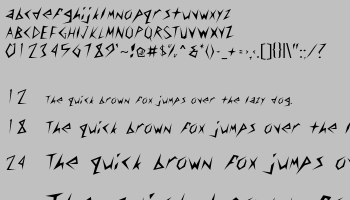 abcdefghijklmnopqrstuvwxyz
ABCDEFGHIJKLMNOPQRSTUVWXYZ
0123456789'~!@#$%^&*()-_+=>,.[]{}|\":;/?
12 The quick brown fox jumps over the lazy dog.
18 The quick brown fox jumps over the l
24 The quick brown fox jumps o